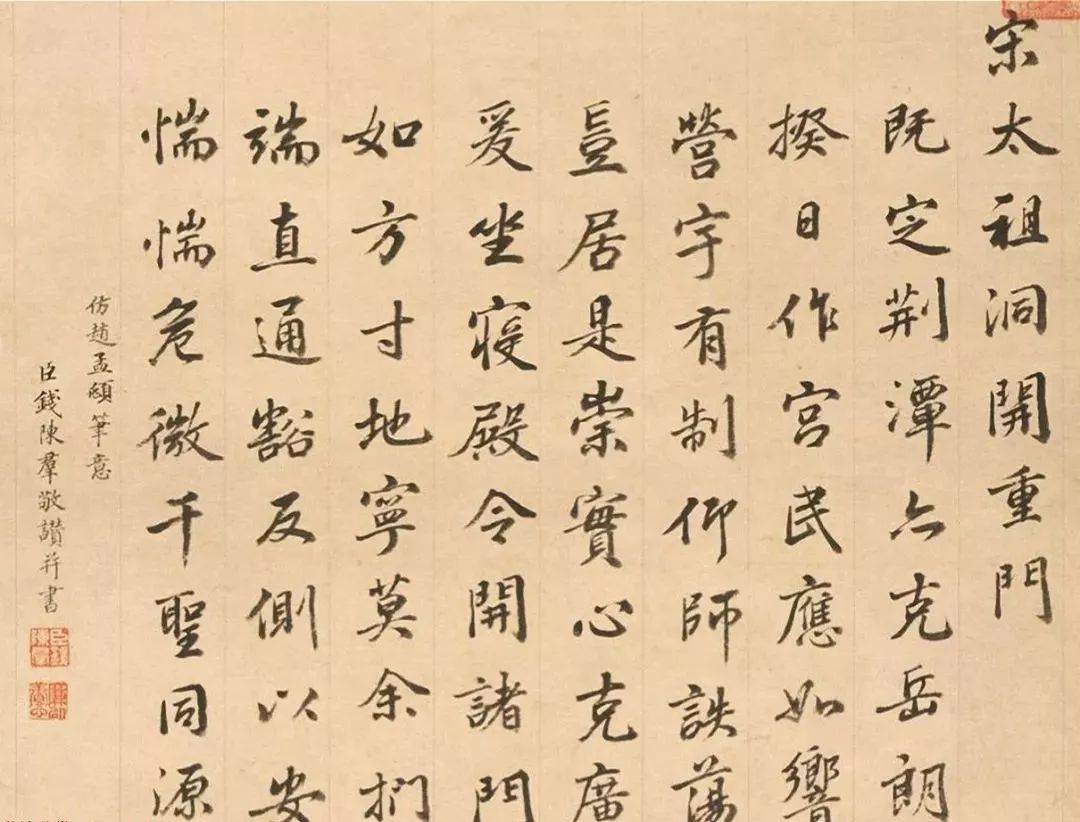 宋太祖洞開重門
既定荆潭亦克岳朗
揆日作宮民應如響
營宇有制仰師詄蕩
豈居是崇實心克廣
爰坐寑殿令開諸門
如方寸地寧莫余捫
端直通豁反側以安
惴惴危微千聖同源
仿趙孟頫筆意
臣錢陳羣敬讚并書